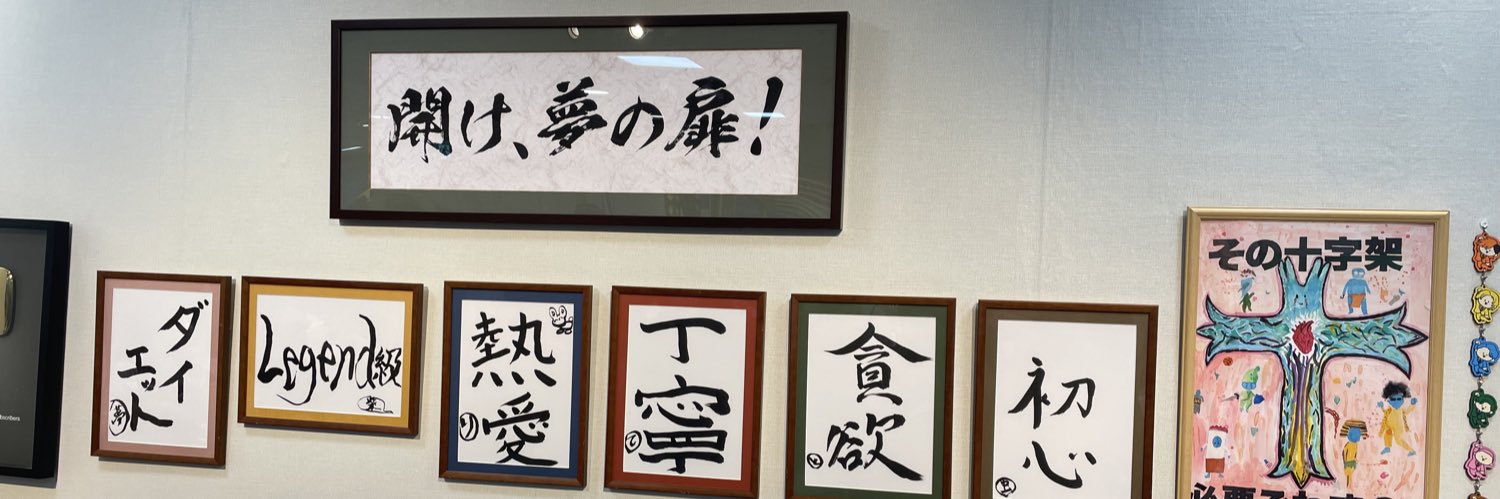 開け、夢の扉!
ダイ
エット
Legend級
熱愛
丁寧
貪欲
初心
その十字架